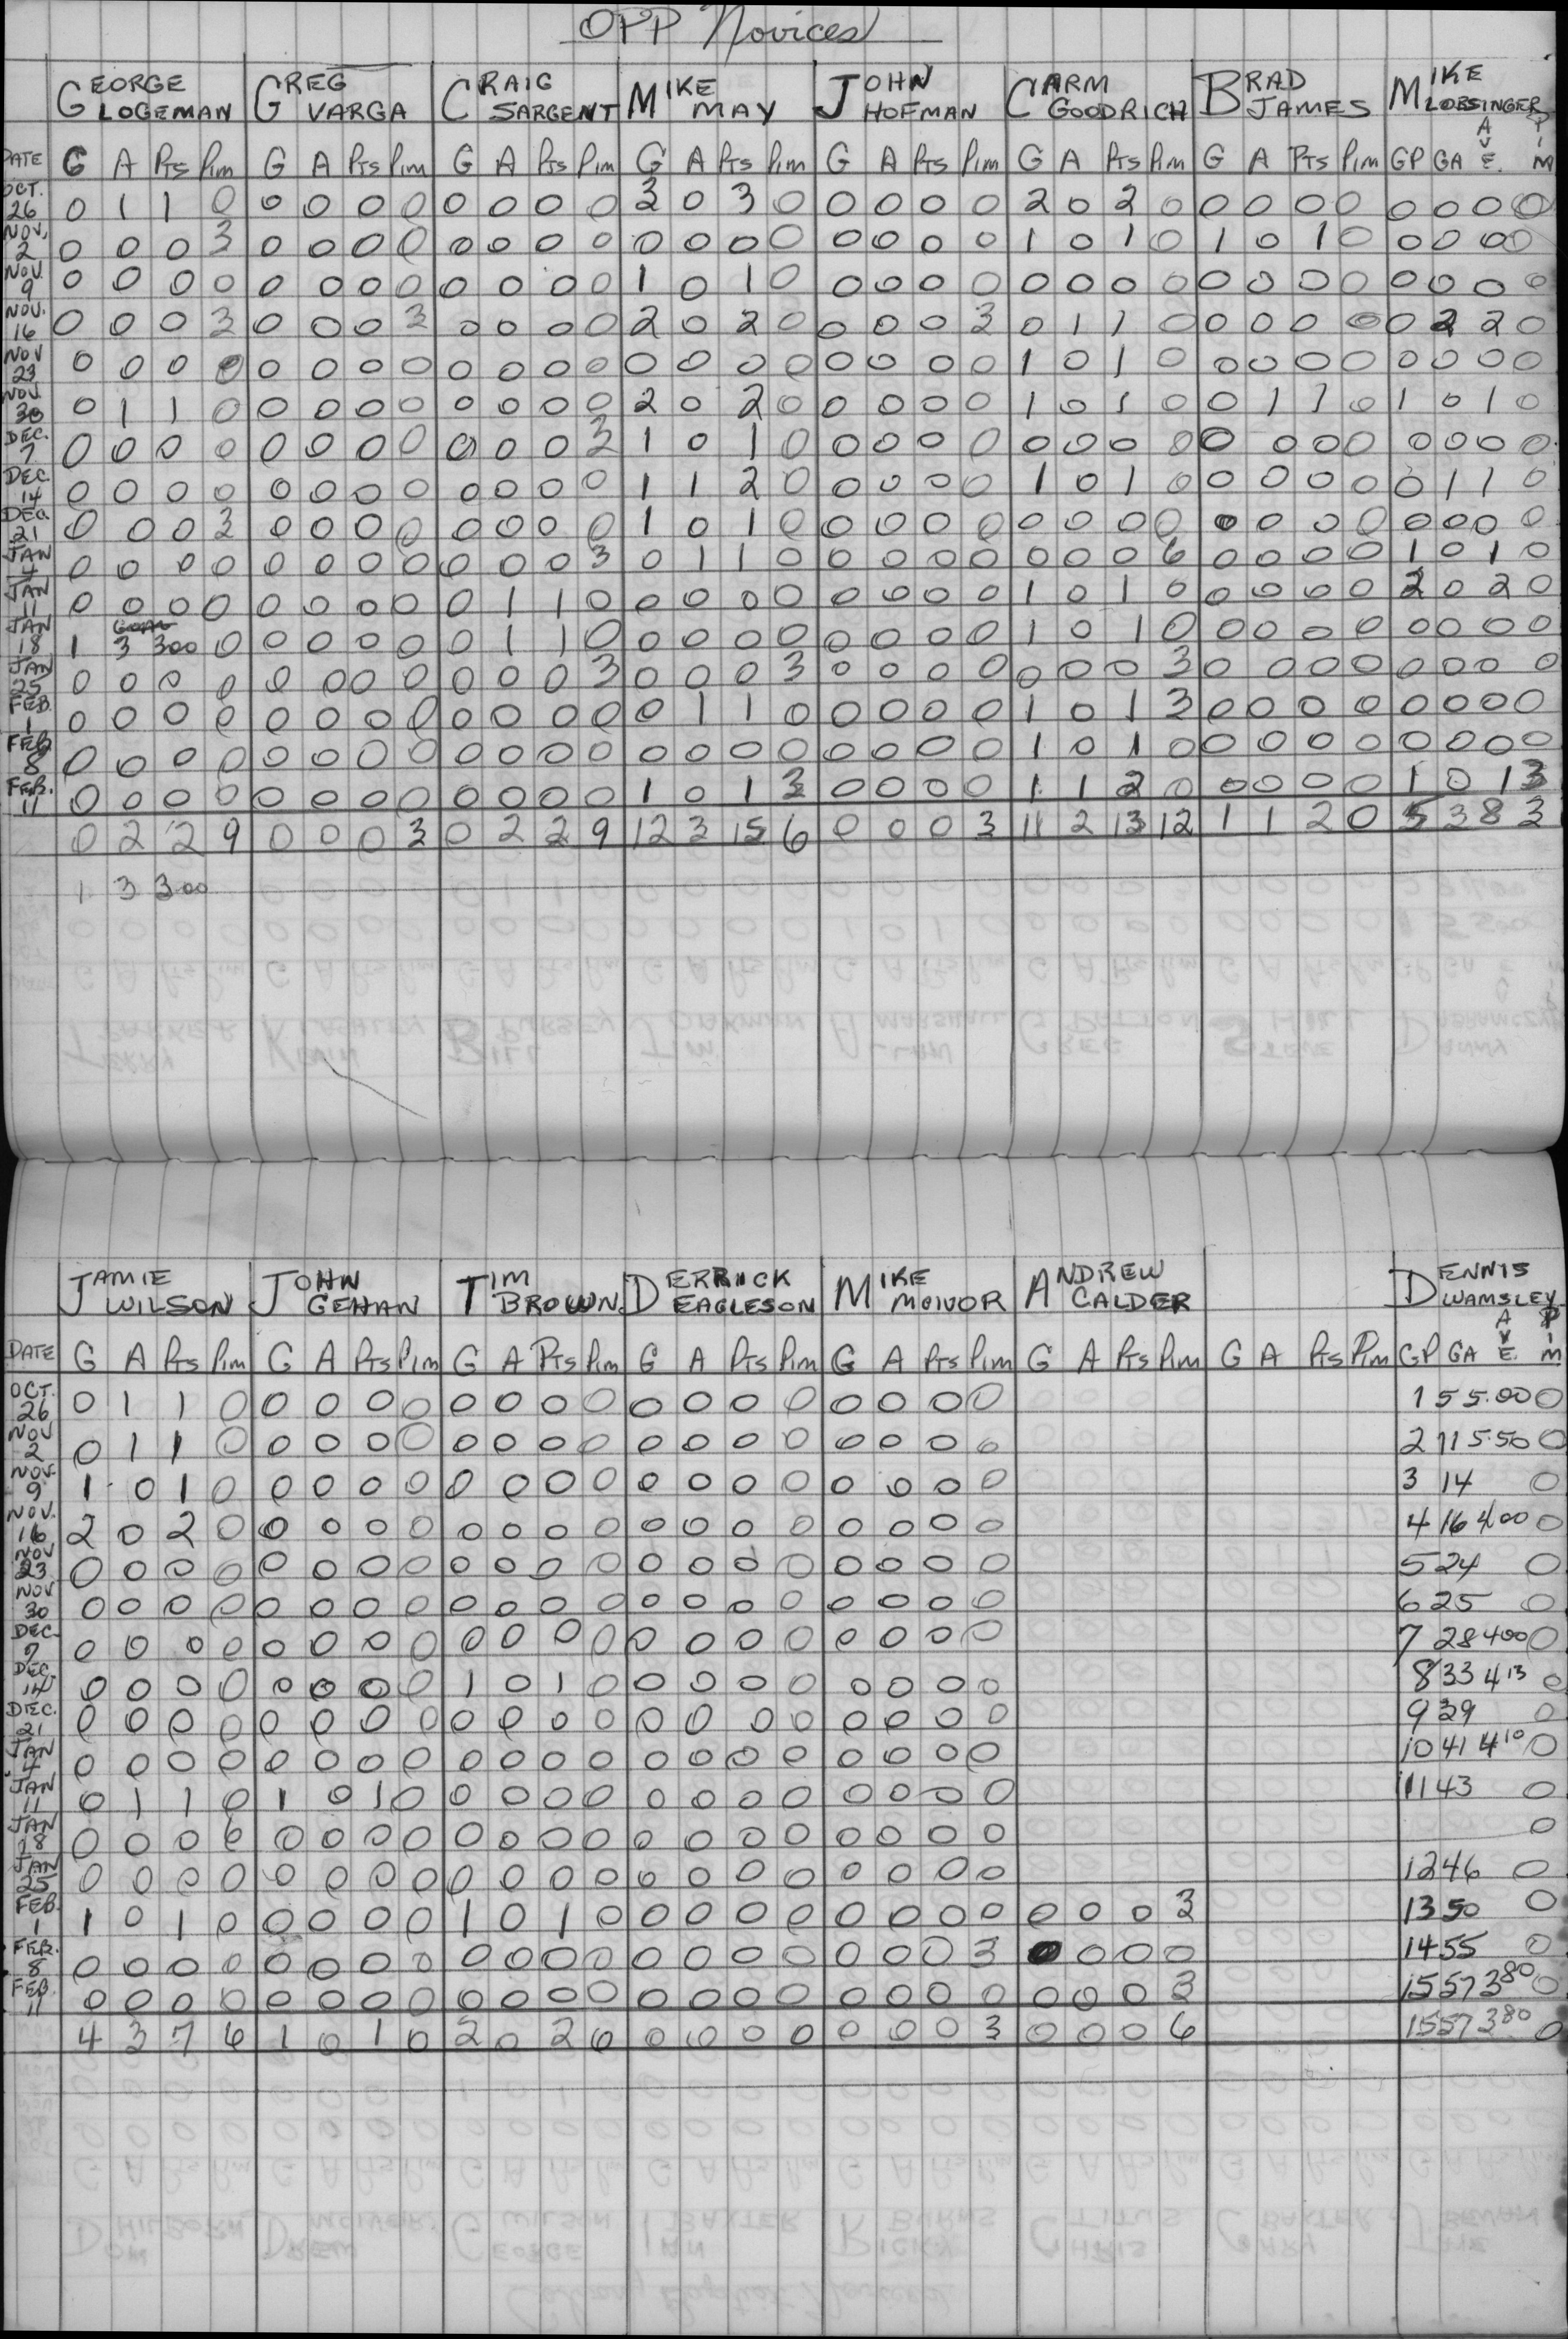 OPP Novices
GEORGE LOGEMAN GREG VARGA CRAIG SARGENT MIKE MAY JOHN HOFMAN CARM GOODRICH BRAD JAMES MIKE LOBSINGER
DATE G A Pts Pim G A Pts Pim G A Pts Pim G A Pts Pim G A Pts Pim G A Pts Pim G A Pts Pim GP GA AVE. PIM
OCT. 26 0 1 1 0 0 0 0 0 0 0 0 0 3 0 3 0 0 0 0 0 2 0 2 0 0 0 0 0 0 0 0 0
NOV. 2 0 0 0 3 0 0 0 0 0 0 0 0 0 0 0 0 0 0 0 0 1 0 1 0 1 0 1 0 0 0 0 0
NOV. 9 0 0 0 0 0 0 0 0 0 0 0 0 1 0 1 0 0 0 0 0 0 0 0 0 0 0 0 0 0 0 0 0
NOV. 16 0 0 0 3 0 0 0 3 0 0 0 0 2 0 2 0 0 0 0 3 0 1 1 0 0 0 0 0 0 2 2 0
NOV 23 0 0 0 0 0 0 0 0 0 0 0 0 0 0 0 0 0 0 0 0 1 0 1 0 0 0 0 0 0 0 0 0
NOV. 30 0 1 1 0 0 0 0 0 0 0 0 0 2 0 2 0 0 0 0 0 1 0 1 0 0 1 1 0 1 0 1 0
DEC. 7 0 0 0 0 0 0 0 0 0 0 0 3 1 0 1 0 0 0 0 0 0 0 0 0 0 0 0 0 0 0 0 0
DEC. 14 0 0 0 0 0 0 0 0 0 0 0 0 1 1 2 0 0 0 0 0 1 0 1 0 0 0 0 0 0 1 1 0
DEC. 21 0 0 0 3 0 0 0 0 0 0 0 0 1 0 1 0 0 0 0 0 0 0 0 0 0 0 0 0 0 0 0 0
JAN 4 0 0 0 0 0 0 0 0 0 0 0 3 0 1 1 0 0 0 0 0 0 0 0 6 0 0 0 0 1 0 1 0
JAN 11 0 0 0 0 0 0 0 0 0 1 1 0 0 0 0 0 0 0 0 0 1 0 1 0 0 0 0 0 2 0 2 0
JAN 18 1 3 3 00 0 0 0 0 0 0 1 1 0 0 0 0 0 0 0 0 0 1 0 1 0 0 0 0 0 0 0 0 0
JAN 25 0 0 0 0 0 0 0 0 0 0 0 3 0 0 0 3 0 0 0 0 0 0 0 3 0 0 0 0 0 0 0 0
FEB. 1 0 0 0 0 0 0 0 0 0 0 0 0 0 1 1 0 0 0 0 0 1 0 1 3 0 0 0 0 0 0 0 0
FEB 8 0 0 0 0 0 0 0 0 0 0 0 0 0 0 0 0 0 0 0 0 1 0 1 0 0 0 0 0 0 0 0 0
FEB. 11 0 0 0 0 0 0 0 0 0 0 0 0 1 0 1 3 0 0 0 0 1 1 2 0 0 0 0 0 1 0 1 3
0 2 2 9 0 0 0 3 0 2 2 9 12 3 15 6 0 0 0 3 11 2 13 12 1 1 2 0 5 3 8 3
1 3 3 00
JAMIE WILSON JOHN GEHAN TIM BROWN DERRICK EAGLESON MIKE MCIVOR ANDREW CALDER DENNIS WAMSLEY
DATE G A Pts Pim G A Pts Pim G A Pts Pim G A Pts Pim G A Pts Pim G A Pts Pim G A Pts Pim GP GA AVE. PIM
OCT. 26 0 1 1 0 0 0 0 0 0 0 0 0 0 0 0 0 0 0 0 0 1 5 5.00 0
NOV 2 0 1 1 0 0 0 0 0 0 0 0 0 0 0 0 0 0 0 0 0 2 11 5.50 0
NOV. 9 1 0 1 0 0 0 0 0 0 0 0 0 0 0 0 0 0 0 0 0 3 14 0
NOV. 16 2 0 2 0 0 0 0 0 0 0 0 0 0 0 0 0 0 0 0 0 4 16 400 0
NOV 23 0 0 0 0 0 0 0 0 0 0 0 0 0 0 0 0 0 0 0 0 5 24 0
NOV 30 0 0 0 0 0 0 0 0 0 0 0 0 0 0 0 0 0 0 0 0 6 25 0
DEC. 7 0 0 0 0 0 0 0 0 0 0 0 0 0 0 0 0 0 0 0 0 7 28 400 0
DEC. 14 0 0 0 0 0 0 0 0 1 0 1 0 0 0 0 0 0 0 0 0 8 33 4 13 0
DEC. 21 0 0 0 0 0 0 0 0 0 0 0 0 0 0 0 0 0 0 0 0 9 39 0
JAN 4 0 0 0 0 0 0 0 0 0 0 0 0 0 0 0 0 0 0 0 0 10 41 4 10 0
JAN 11 0 1 1 0 1 0 1 0 0 0 0 0 0 0 0 0 0 0 0 0 11 43 0
JAN 18 0 0 0 6 0 0 0 0 0 0 0 0 0 0 0 0 0 0 0 0 0
JAN 25 0 0 0 0 0 0 0 0 0 0 0 0 0 0 0 0 0 0 0 0 12 46 0
FEB. 1 1 0 1 0 0 0 0 0 1 0 1 0 0 0 0 0 0 0 0 0 0 0 0 3 13 50 0
FEB. 8 0 0 0 0 0 0 0 0 0 0 0 0 0 0 0 0 0 0 0 3 0 0 0 0 14 55 0
FEB. 11 0 0 0 0 0 0 0 0 0 0 0 0 0 0 0 0 0 0 0 0 0 0 0 3 15 57 3 80 0
4 3 7 6 1 0 1 0 2 0 2 0 0 0 0 0 0 0 0 3 0 0 0 6 15 57 3 80 0